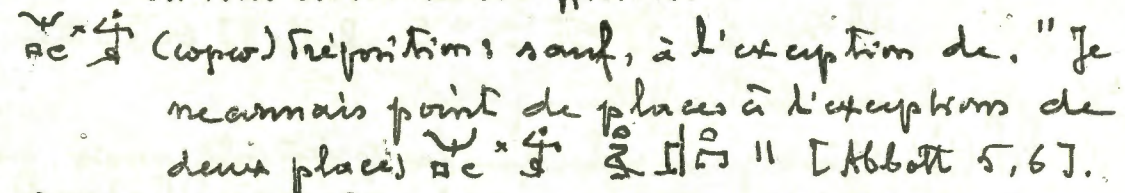 (wpw) Préposition: sauf, à l'exception de. " Je
ne connais point de places à l'exceptions de
deux places " [Abbott 5,6].